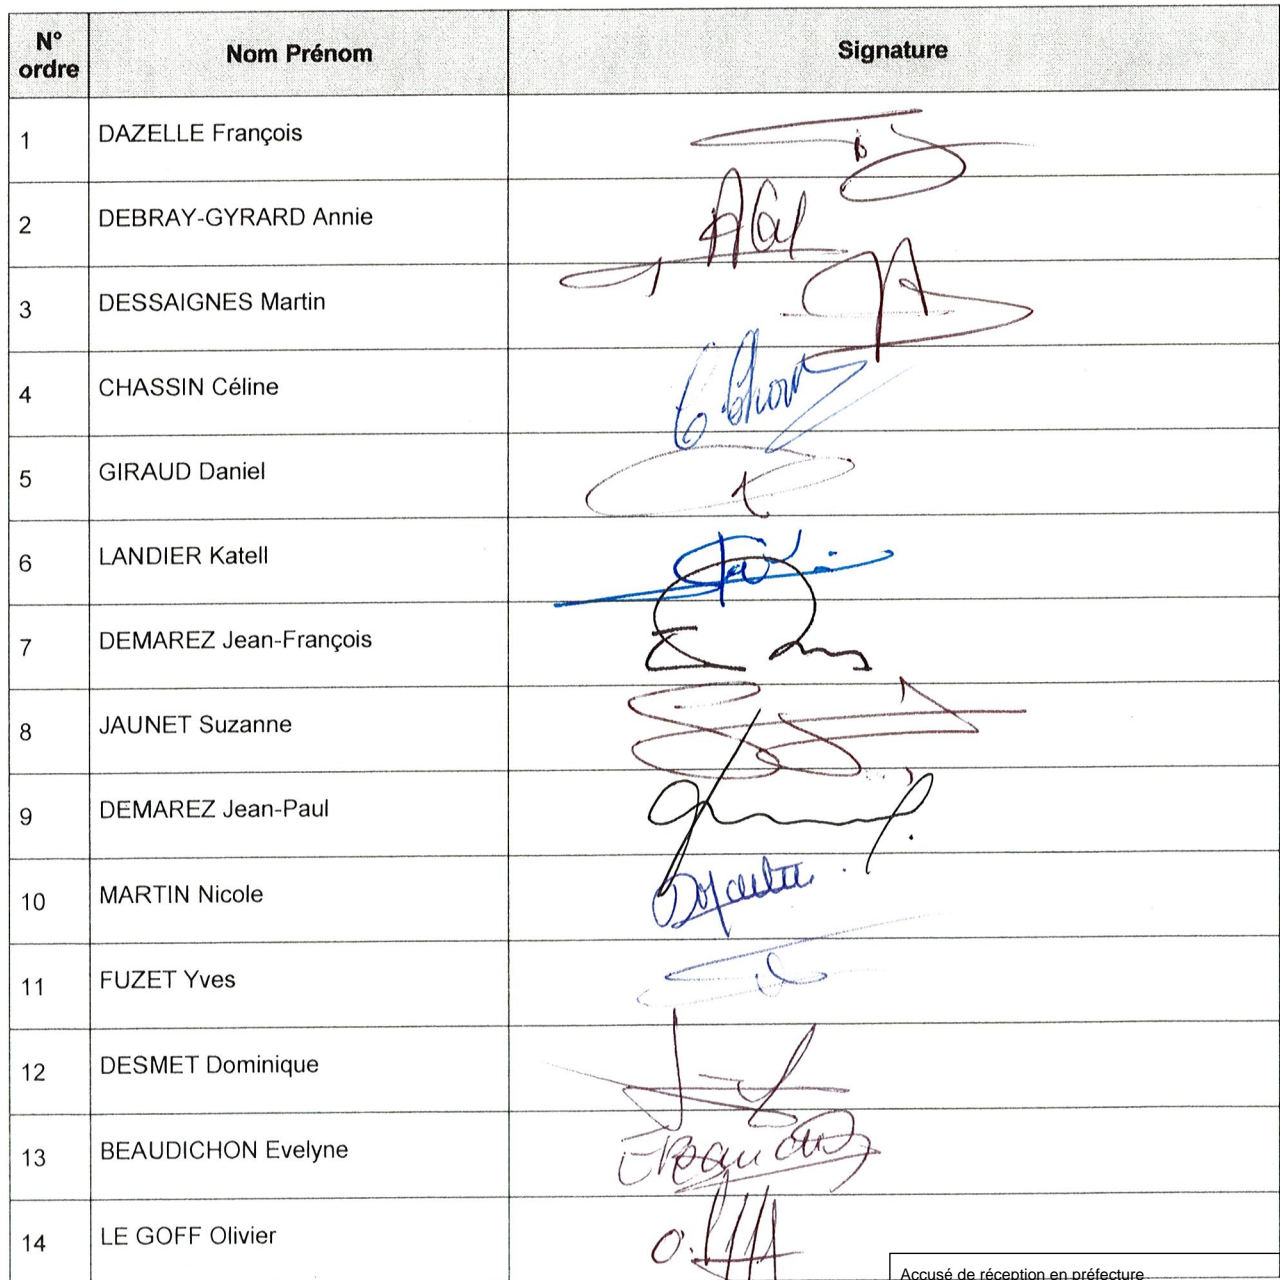 N° ordre Nom Prénom Signature
1 DAZELLE François
2 DEBRAY-GYRARD Annie
3 DESSAIGNES Martin
4 CHASSIN Céline
5 GIRAUD Daniel
6 LANDIER Katell
7 DEMAREZ Jean-François
8 JAUNET Suzanne
9 DEMAREZ Jean-Paul
10 MARTIN Nicole
11 FUZET Yves
12 DESMET Dominique
13 BEAUDICHON Evelyne
14 LE GOFF Olivier
Accusé de réception en préfecture